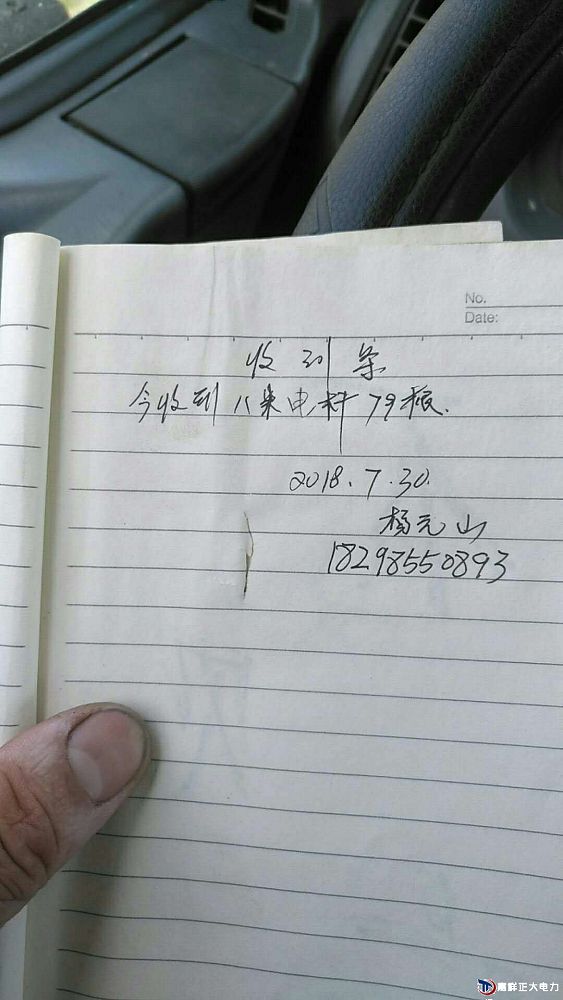 No.
Date:
收到条
今收到八米电杆79根.
2018.7.30.
杨元山
18298550893
嘉群正大电力